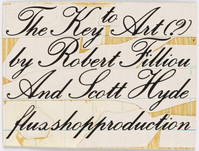 The Key to Art (?)
by Robert Filliou
And Scott Hyde
flux shopproduction